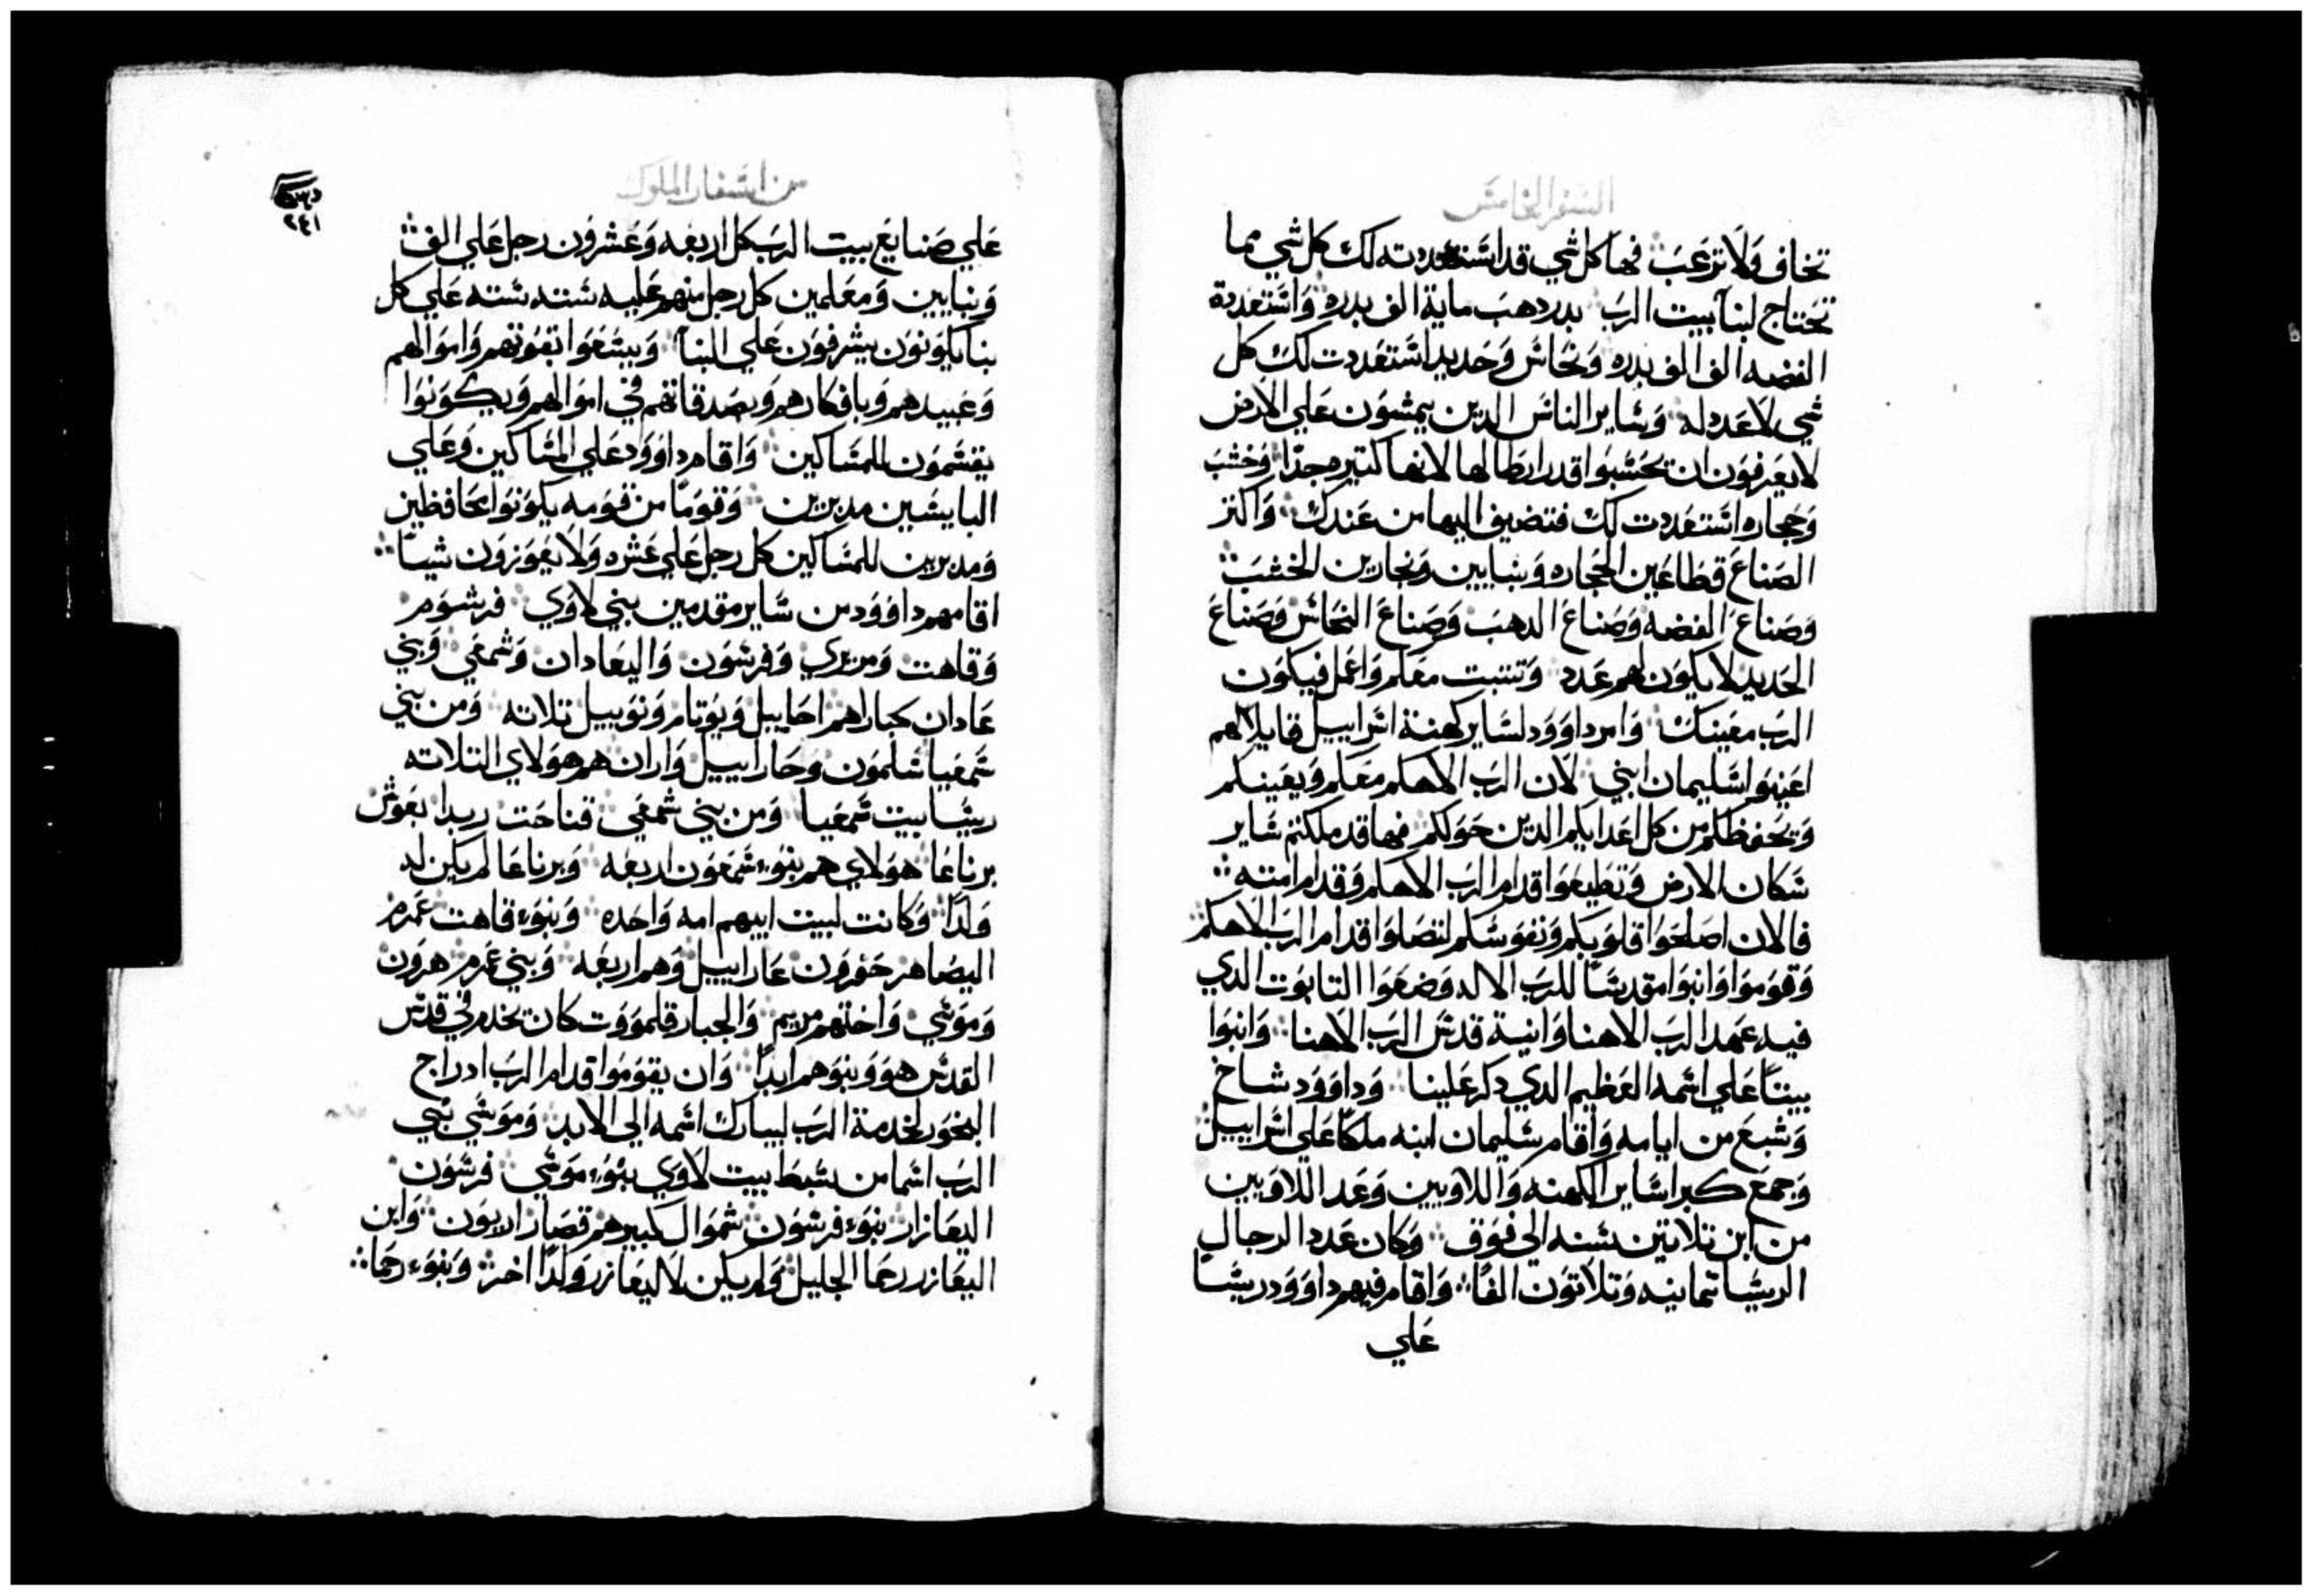 السفر الخامس
تخاف ولا ترعب فها كل شي قد استعددته لك كل شي مما
تحتاج لبنا بيت الرب بدر دهب ماية الف بدره واستعددة
الفضه الف الف بدره ونحاس وحديد استعددت لك كل
شي لا عدد له وساير الناس الدين يمشون علي الارض
لا يعرفون ان يحسبوا قدر ابطالها لانها كتيره جدا وخشب
وحجاره استعددت لك فتضيف اليها من عندك واكتر
الصناع قطاعين الحجاره وبنايين ونجارين الخشب
وصناع الفضه وصناع الدهب وصناع النحاس وصناع
الحديد لا يكون لهم عدد وتتبت معلم واعمل فيكون
الرب معينك وامر داوود لساير كهنة اسراييل قايلا لهم
اعينوا سليمان ابني لان الرب الاهكم معكم ويعينكم
وتحفظكم من كل اعدايكم الدين حولكم فها قد ملكتم ساير
سكان الارض وتطيعوا قدام الرب الاهكم وقدام امته
فالان اصلحوا قلوبكم ونفوسكم لتصلوا قدام الرب الاهكم
وقوموا وانبوا مقدسا للرب الاله وضعوا التابوت الدي
فيه عهد الرب الاهنا وانية قدس الرب الاهنا وانبوا
بيتا علي اسمه العظيم الدي دكر علينا وداوود شاخ
وشبع من ايامه واقام سليمان ابنه ملكا علي اسراييل
وجمع كبرا ساير الكهنه واللاويين وعد اللاويين
من ابن تلاتين سنه الي فوق وكان عدد الرجال
الريسا تمانيه وتلاتون الفا واقام فيهم داوود ريسا
علي
من اسفار الملوك
٢٤١
علي صنايع بيت الرب كل اربعه وعشرون رجل علي الف
وبنايين ومعلمين كل رجل منهم عليه سته سته علي كل
بنا يكونون يشرفون علي البنا ويسعوا بقوتهم واموالهم
وعبيدهم وبافكارهم وبصدقاتهم في اموالهم ويكونوا
يقسمون للمساكين واقام داوود علي المساكين وعلي
البايسين مدبرين وقوما من قومه يكونوا محافظين
ومدبرين للمساكين كل رجل علي عشره ولا يعوزون شيا
اقامهم داوود من ساير مقدمين بني لاوي فرشوم
وقاهت ومرري وفرسون واليعادان وشمعي وبني
عادان كبارهم احاييل ويوتام ونوييل تلاته ومن بني
شمعيا سلمون وحاراييل واران هم هولاي التلاته
ريسا بيت شمعيا ومن بني شمعي قناحت ربدا بغوش
برناعا هولاي هم بنو شمعون اربعه وبرناعا لم يكن له
ولدا وكانت لبيت ابيهم امه واحده وبنو قاهت عمرم
اليصاهر حفرون عاراييل وهم اربعه وبني عمرم هرون
وموسي واختهم مريم والجبار قلموووت كان يخدم في قدس
القدس هو وبنوهم ابدا وان يقوموا قدام الرب ادراج
البخور لخدمة الرب ليبارك اسمه الي الابد وموسي نبي
الرب اسما من سبط بيت لاوي بنو موسي فرسون
اليعازار بنو فرسون شموال كبيرهم قصار الابون وابن
اليعازر رحما الجليل ولم يكن لاليعازر ولدا اخر وبنو رحما